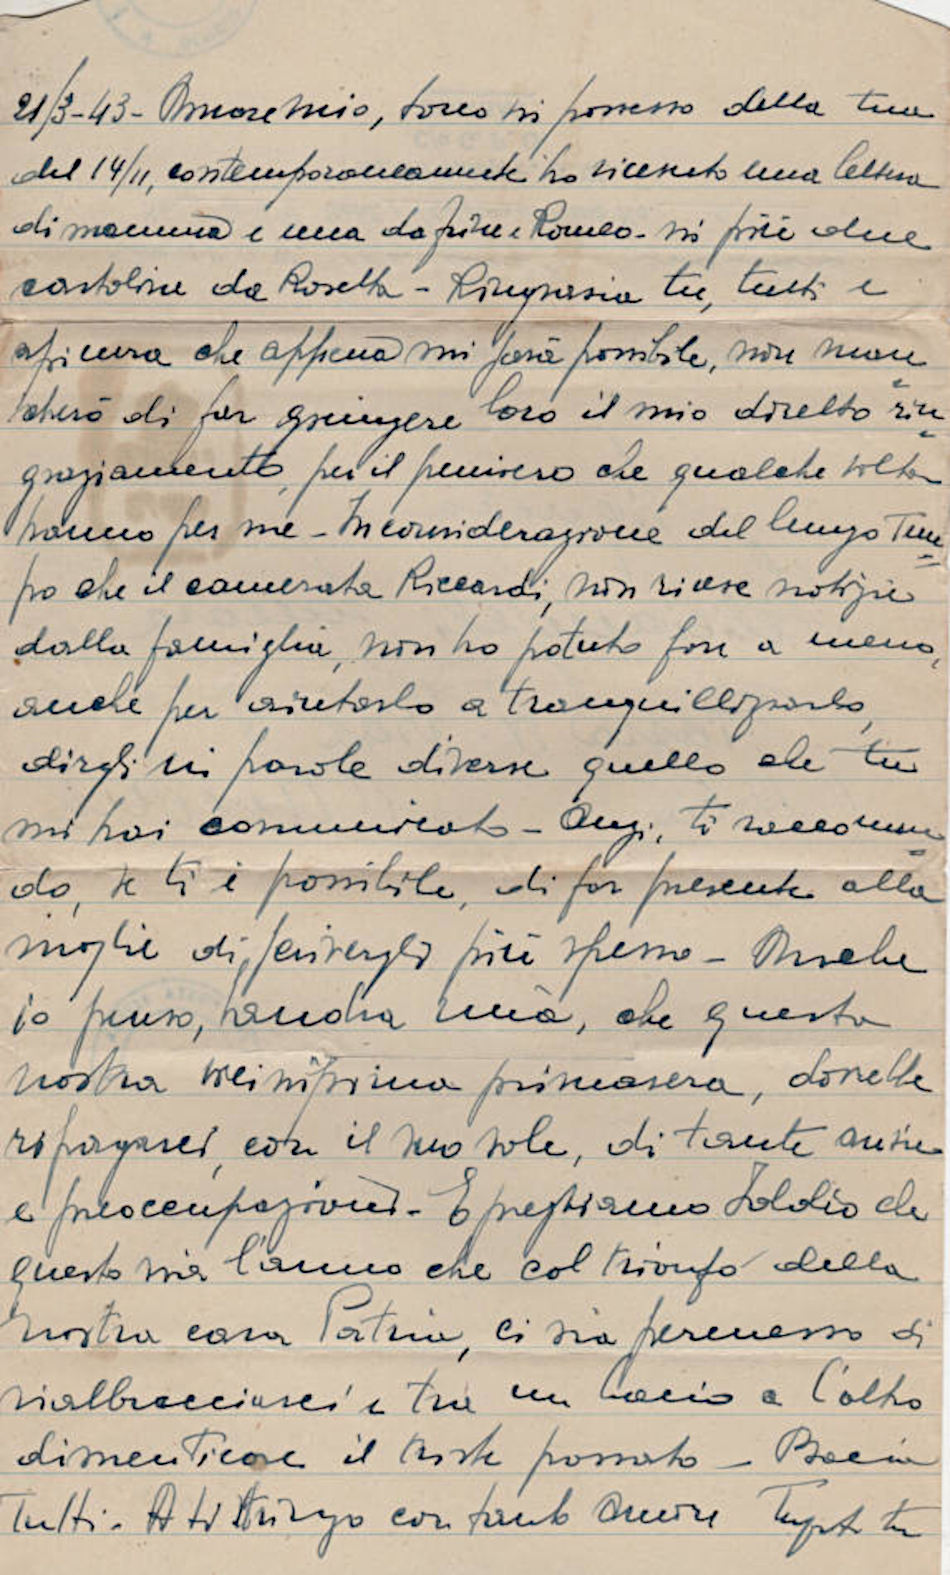 21/3-43- Amore Mio, sono in possesso della tua
del 14/11, contemporaneamente ho ricevuto una lettera
di mamma e una da e Romeo- in più due
cartoline da Rosetta - Ringrazia tu, tutti e
assicura che appena mi sarà possibile, non man
cherò di far giungere loro il mio diretto rin
graziamento, per il pensiero che qualche volta
hanno per me - In considerazione del lungo tem
po che il camerata Riccardi, non riceve notizie
dalla famiglia, non ho potuto fare a meno,
anche per aiutarlo a tranquillizzarlo,
dirgli in parole diverse quello che tu
mi hai comunicato - Anzi, ti raccoman
do, se ti è possibile, di far presente alla
moglie di scrivergli più spesso - Anche
io penso, mia, che questa
nostra primavera, dovrebbe
ripagarci, con il suo sole, di tante ansie
e preoccupazioni - E preghiamo Iddio che
questo sia l'anno che col trionfo della
nostra cara Patria, ci sia permesso di
riabbracciarci e tra un bacio e l'altro
dimenticare il triste passato - Bacia
Tutti - A te stringo con tanto amore tu